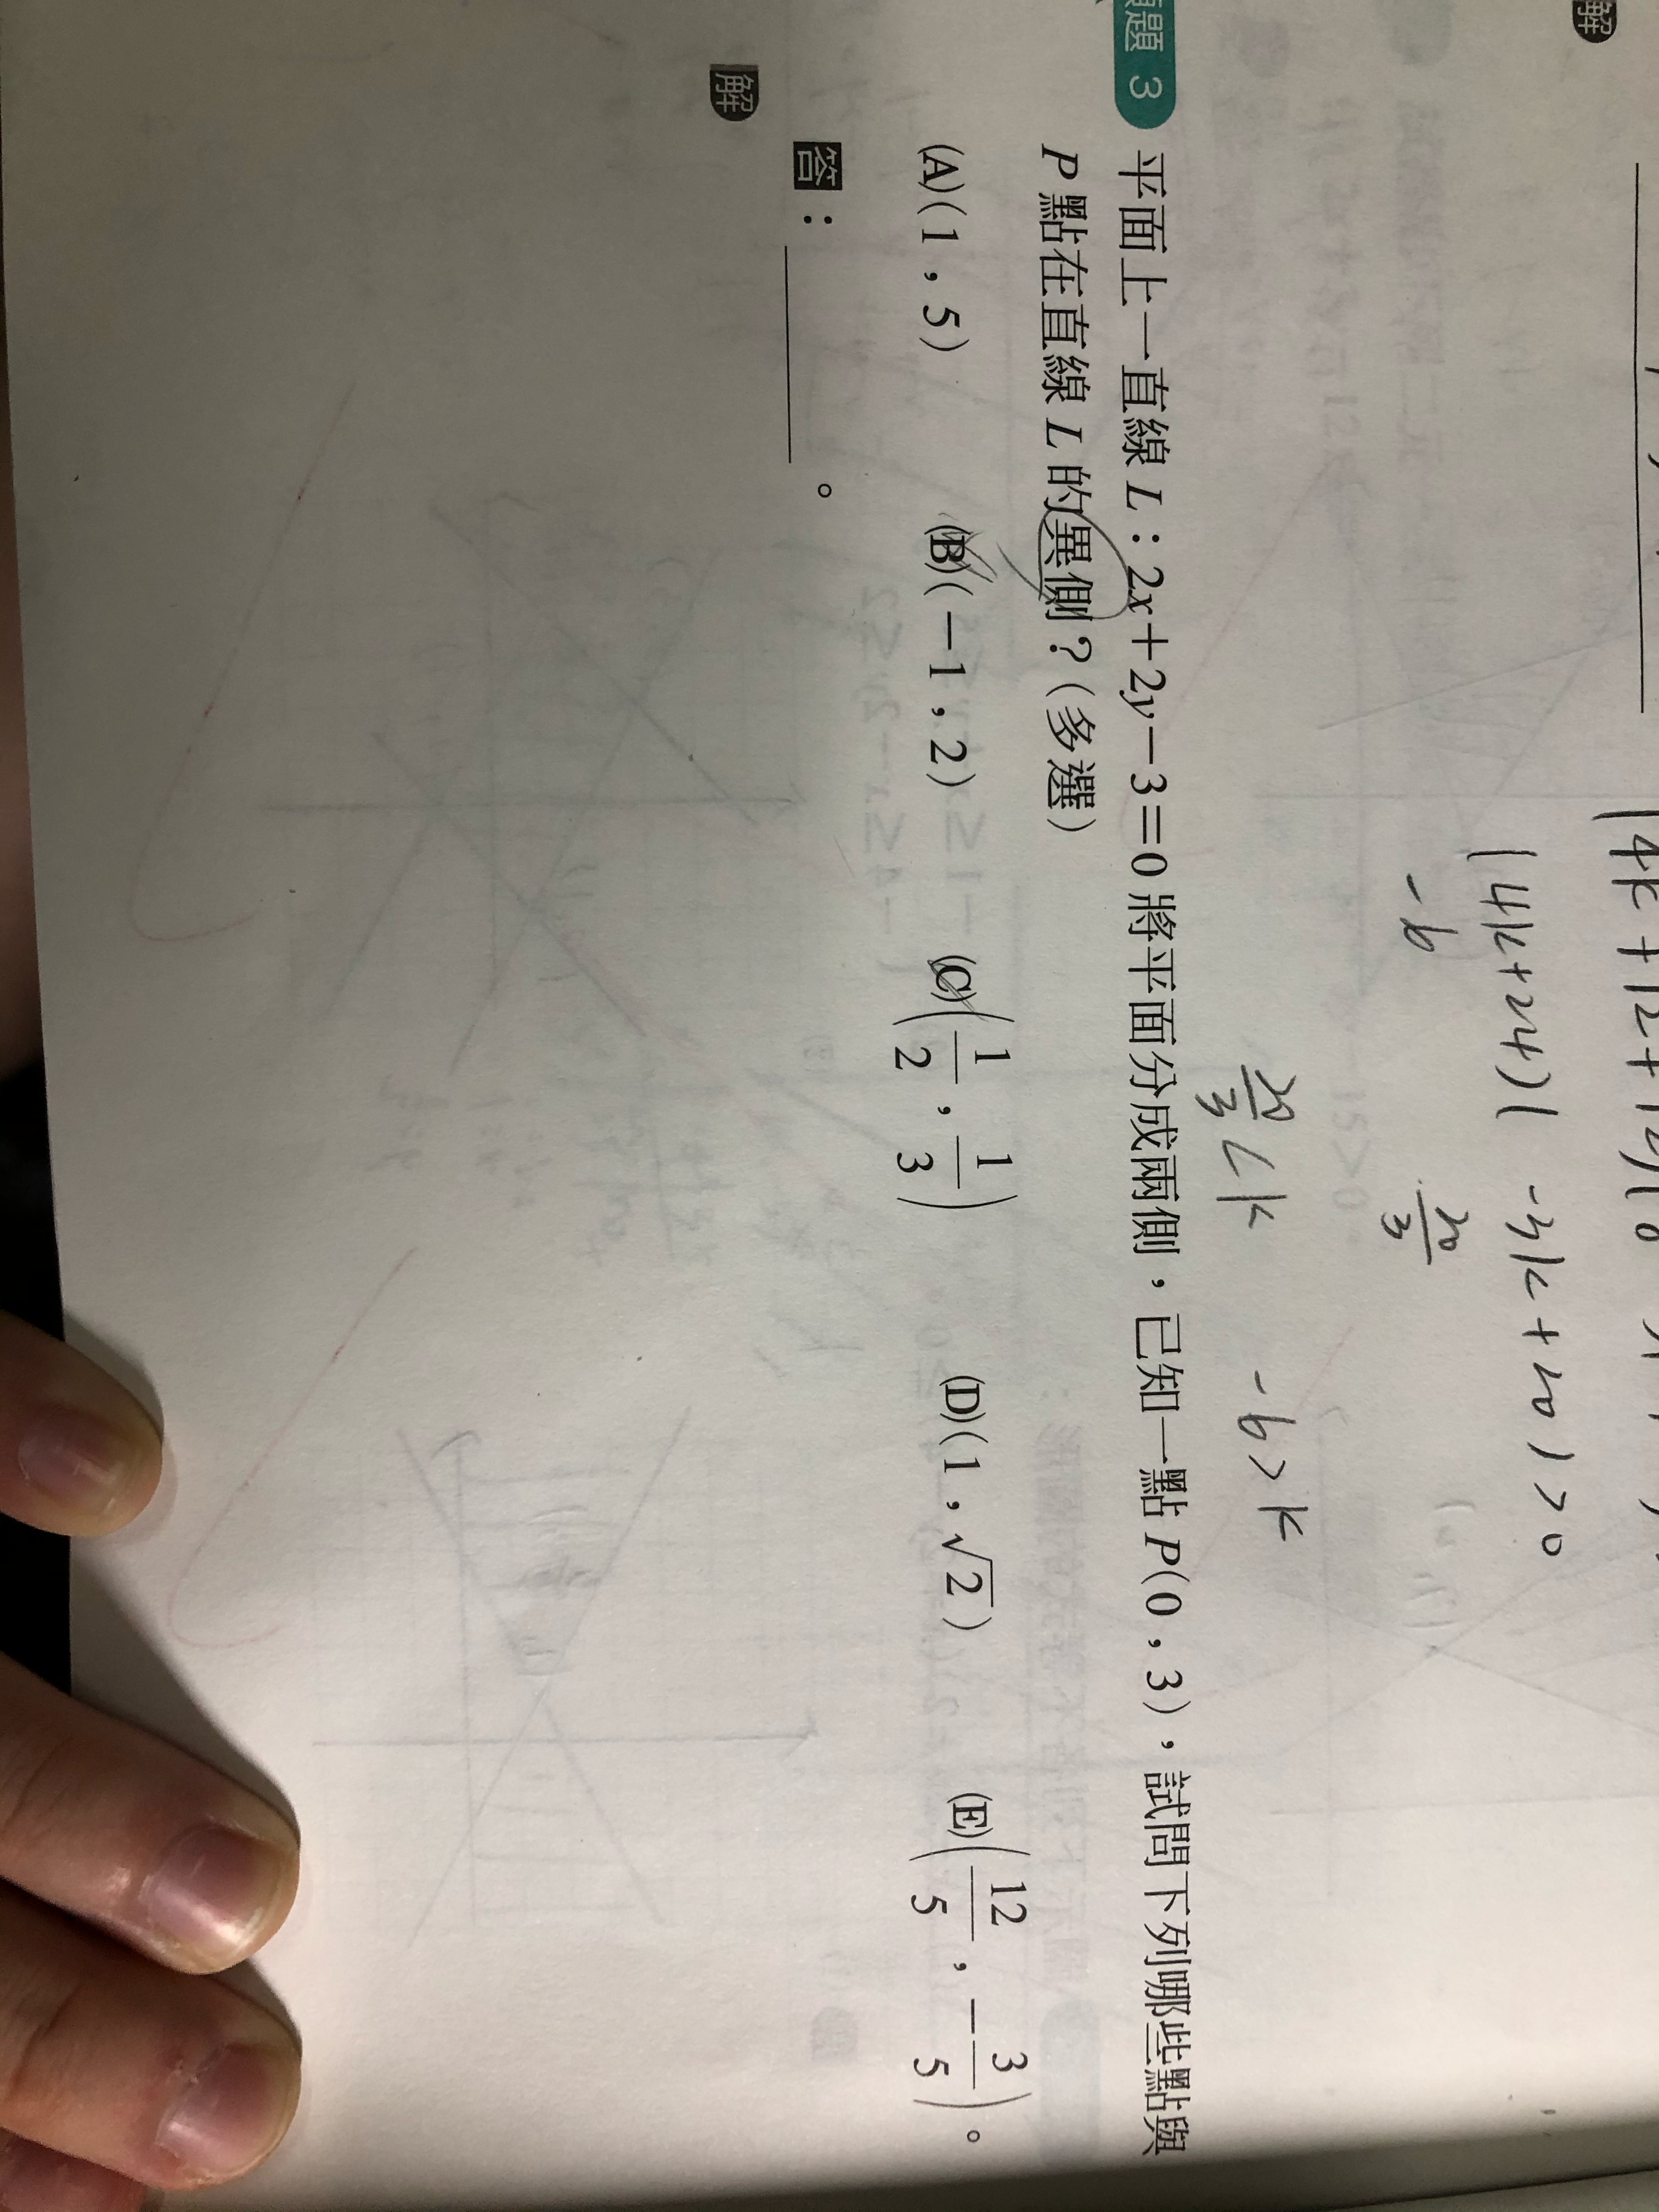 解
|4k+12+12
|(4k+24)(-3k+20)>0
-6 20/3
20/3<k -6>k
題 3 平面上一直線 L：2x+2y−3=0 將平面分成兩側，已知一點 P(0，3)，試問下列哪些點與
P 點在直線 L 的異側？(多選)
(A)(1，5) (B)(−1，2) (C)(1/2，1/3) (D)(1，√2) (E)(12/5，−3/5)。
答：＿＿＿。
解